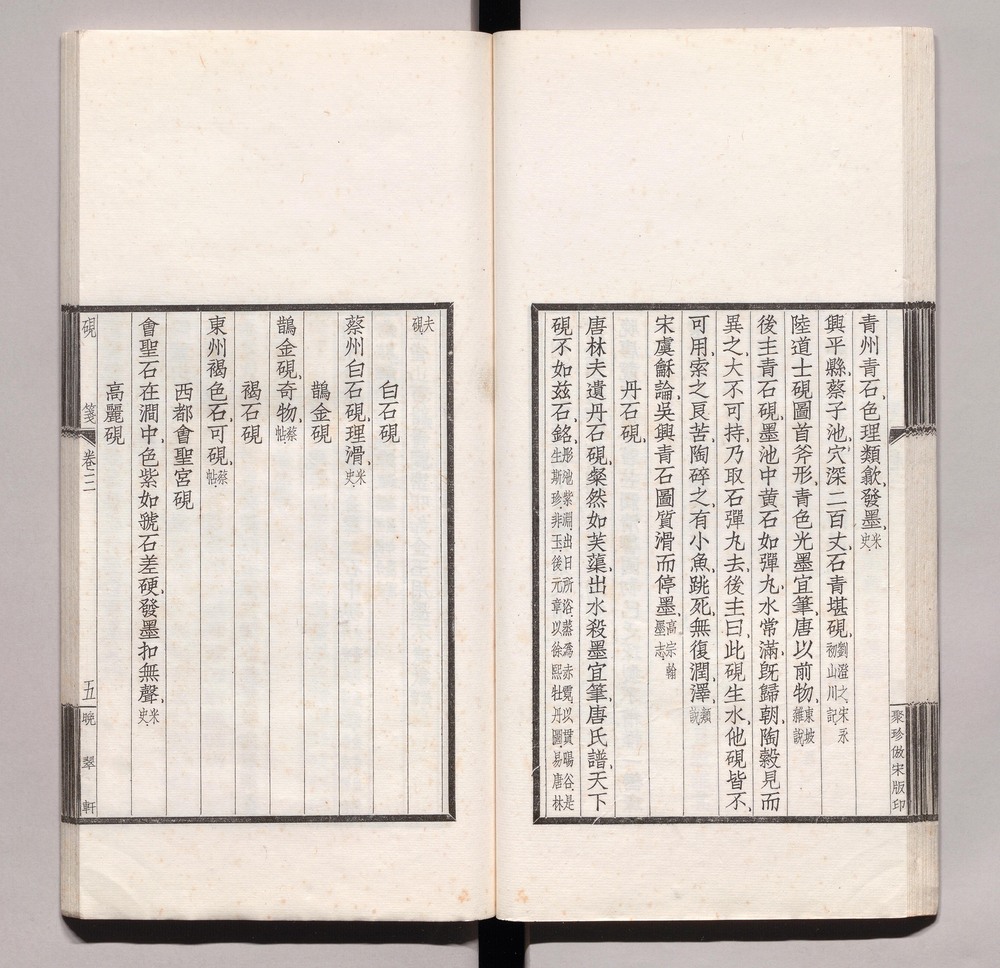 青州青石色理類歙發墨米史
興平縣蔡子池穴深二百丈石青堪硯劉澄之宋永初山川記
陸道士硯圖首斧形青色光墨宜筆唐以前物東坡雜說
後主青石硯墨池中黄石如彈丸水常滿旣歸朝陶穀見而
異之大不可持乃取石彈丸去後主曰此硯生水他硯皆不
可用索之良苦陶碎之有小魚跳死無復潤澤類說
宋虞龢論吳興青石圖質滑而停墨高宗翰墨志
丹石硯
唐林夫遺丹石硯粲然如芙蕖出水殺墨宜筆唐氏譜天下
硯不如兹石銘彤池紫淵出日所浴蒸為赤霓以貫暘谷是生斯珍非玉後元章以徐熙牡丹圖易唐林
聚珍倣宋版印
夫硯
白石硯
蔡州白石硯理滑米史
鵲金硯
鵲金硯奇物蔡帖
褐石硯
東州褐色石可硯蔡帖
西都會聖宮硯
會聖石在澗中色紫如虢石差硬發墨扣無聲米史
高麗硯
硯 箋 卷三 五 晩翠軒